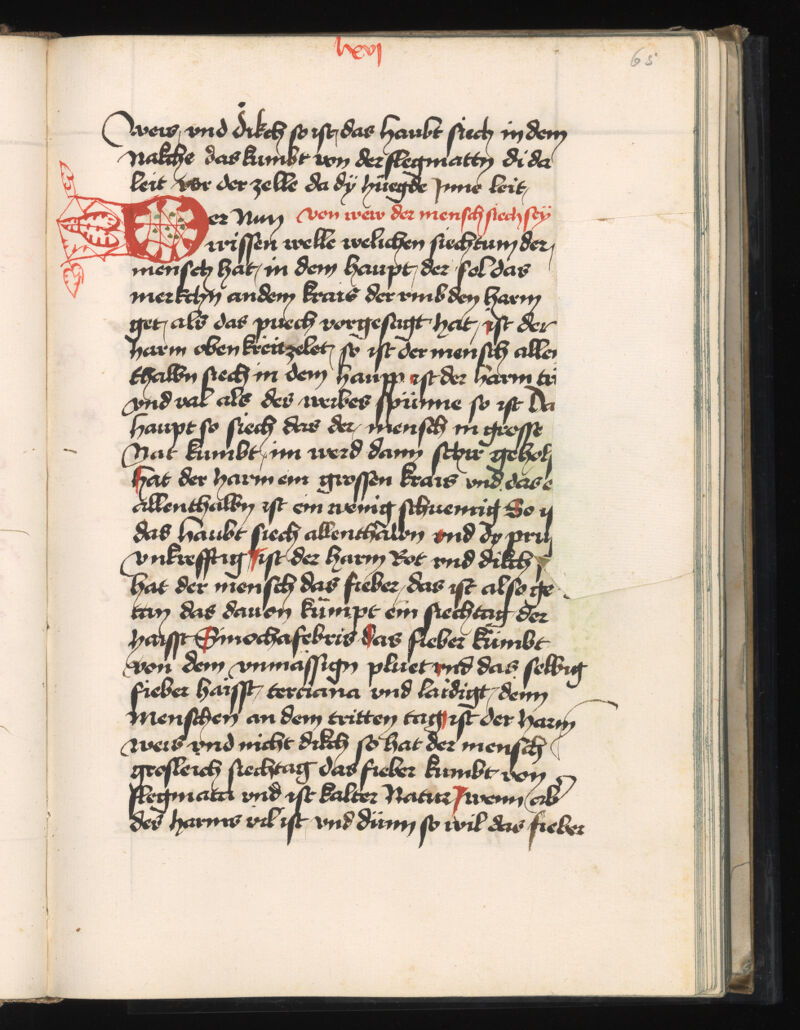 lxvi
65
weis vnd dikch so ist das haubt siech in dem
Nakche das kumbt von der flegmatty di da
leit vor der zelle da dÿ huegde Inne leit
Der Nun von wew der mensch siech seÿ
wissen welle welichen siechtum der
mensch hat in dem haupt der sol das
merkchn an dem krais der vmb den harm
get als das puech vorgesagt hat ist der
harm oben so ist der mensch allen
thalbn siech in dem haupp ist der harm
vnd val als des weibes spünne so ist da
haupt so siech das der mensch in grosse
Nat kumbt im werd dann schir
hat der harm ein grossen krais vnd das
allenthalbn ist ein wenig So
das haubt siech allenthalbn vnd dy
vnkrefftig ist der harm Rot vnd dikch
hat der mensch das fieber das ist also ge
tan das dauon kümpt ein siechtag der
haisst Sinochafebris das fieber kümbt
von dem vnmässign pluet vnd das selbig
fieber haisst terciana vnd laidigt denn
Menschen an dem tritten tag ist der harm
weis vnd nicht dikch so hat der mensch
grosleich siechtag das fieber kumbt von
flegmata vnd ist kalter Natur wenn ab
des harms vil ist vnd dünn so wil das fieber